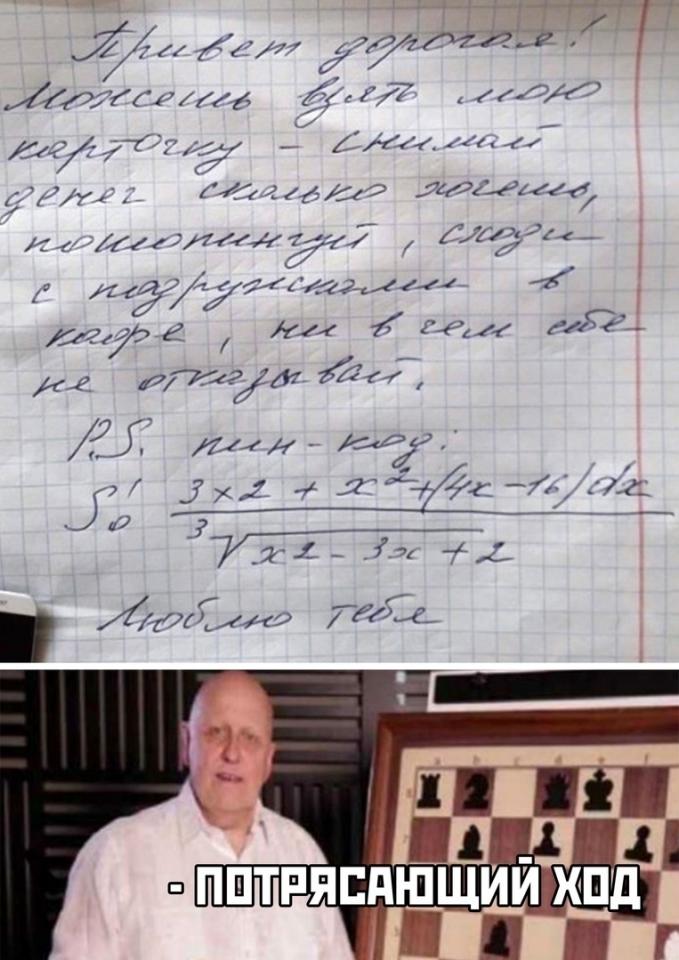 Привет дорогая!
Можешь взять мою
карточку - снимай
денег сколько хочешь,
пошопингуй, сходи
с подружками в
кафе, ни в чем себе
не отказывай.
P.S. пин-код:
S₀¹ 3x2 + x² + (4x - 16)dx
³√x2 - 3x + 2
Люблю тебя
a b c d e f
8
7
- ПОТРЯСАЮЩИЙ ХОД